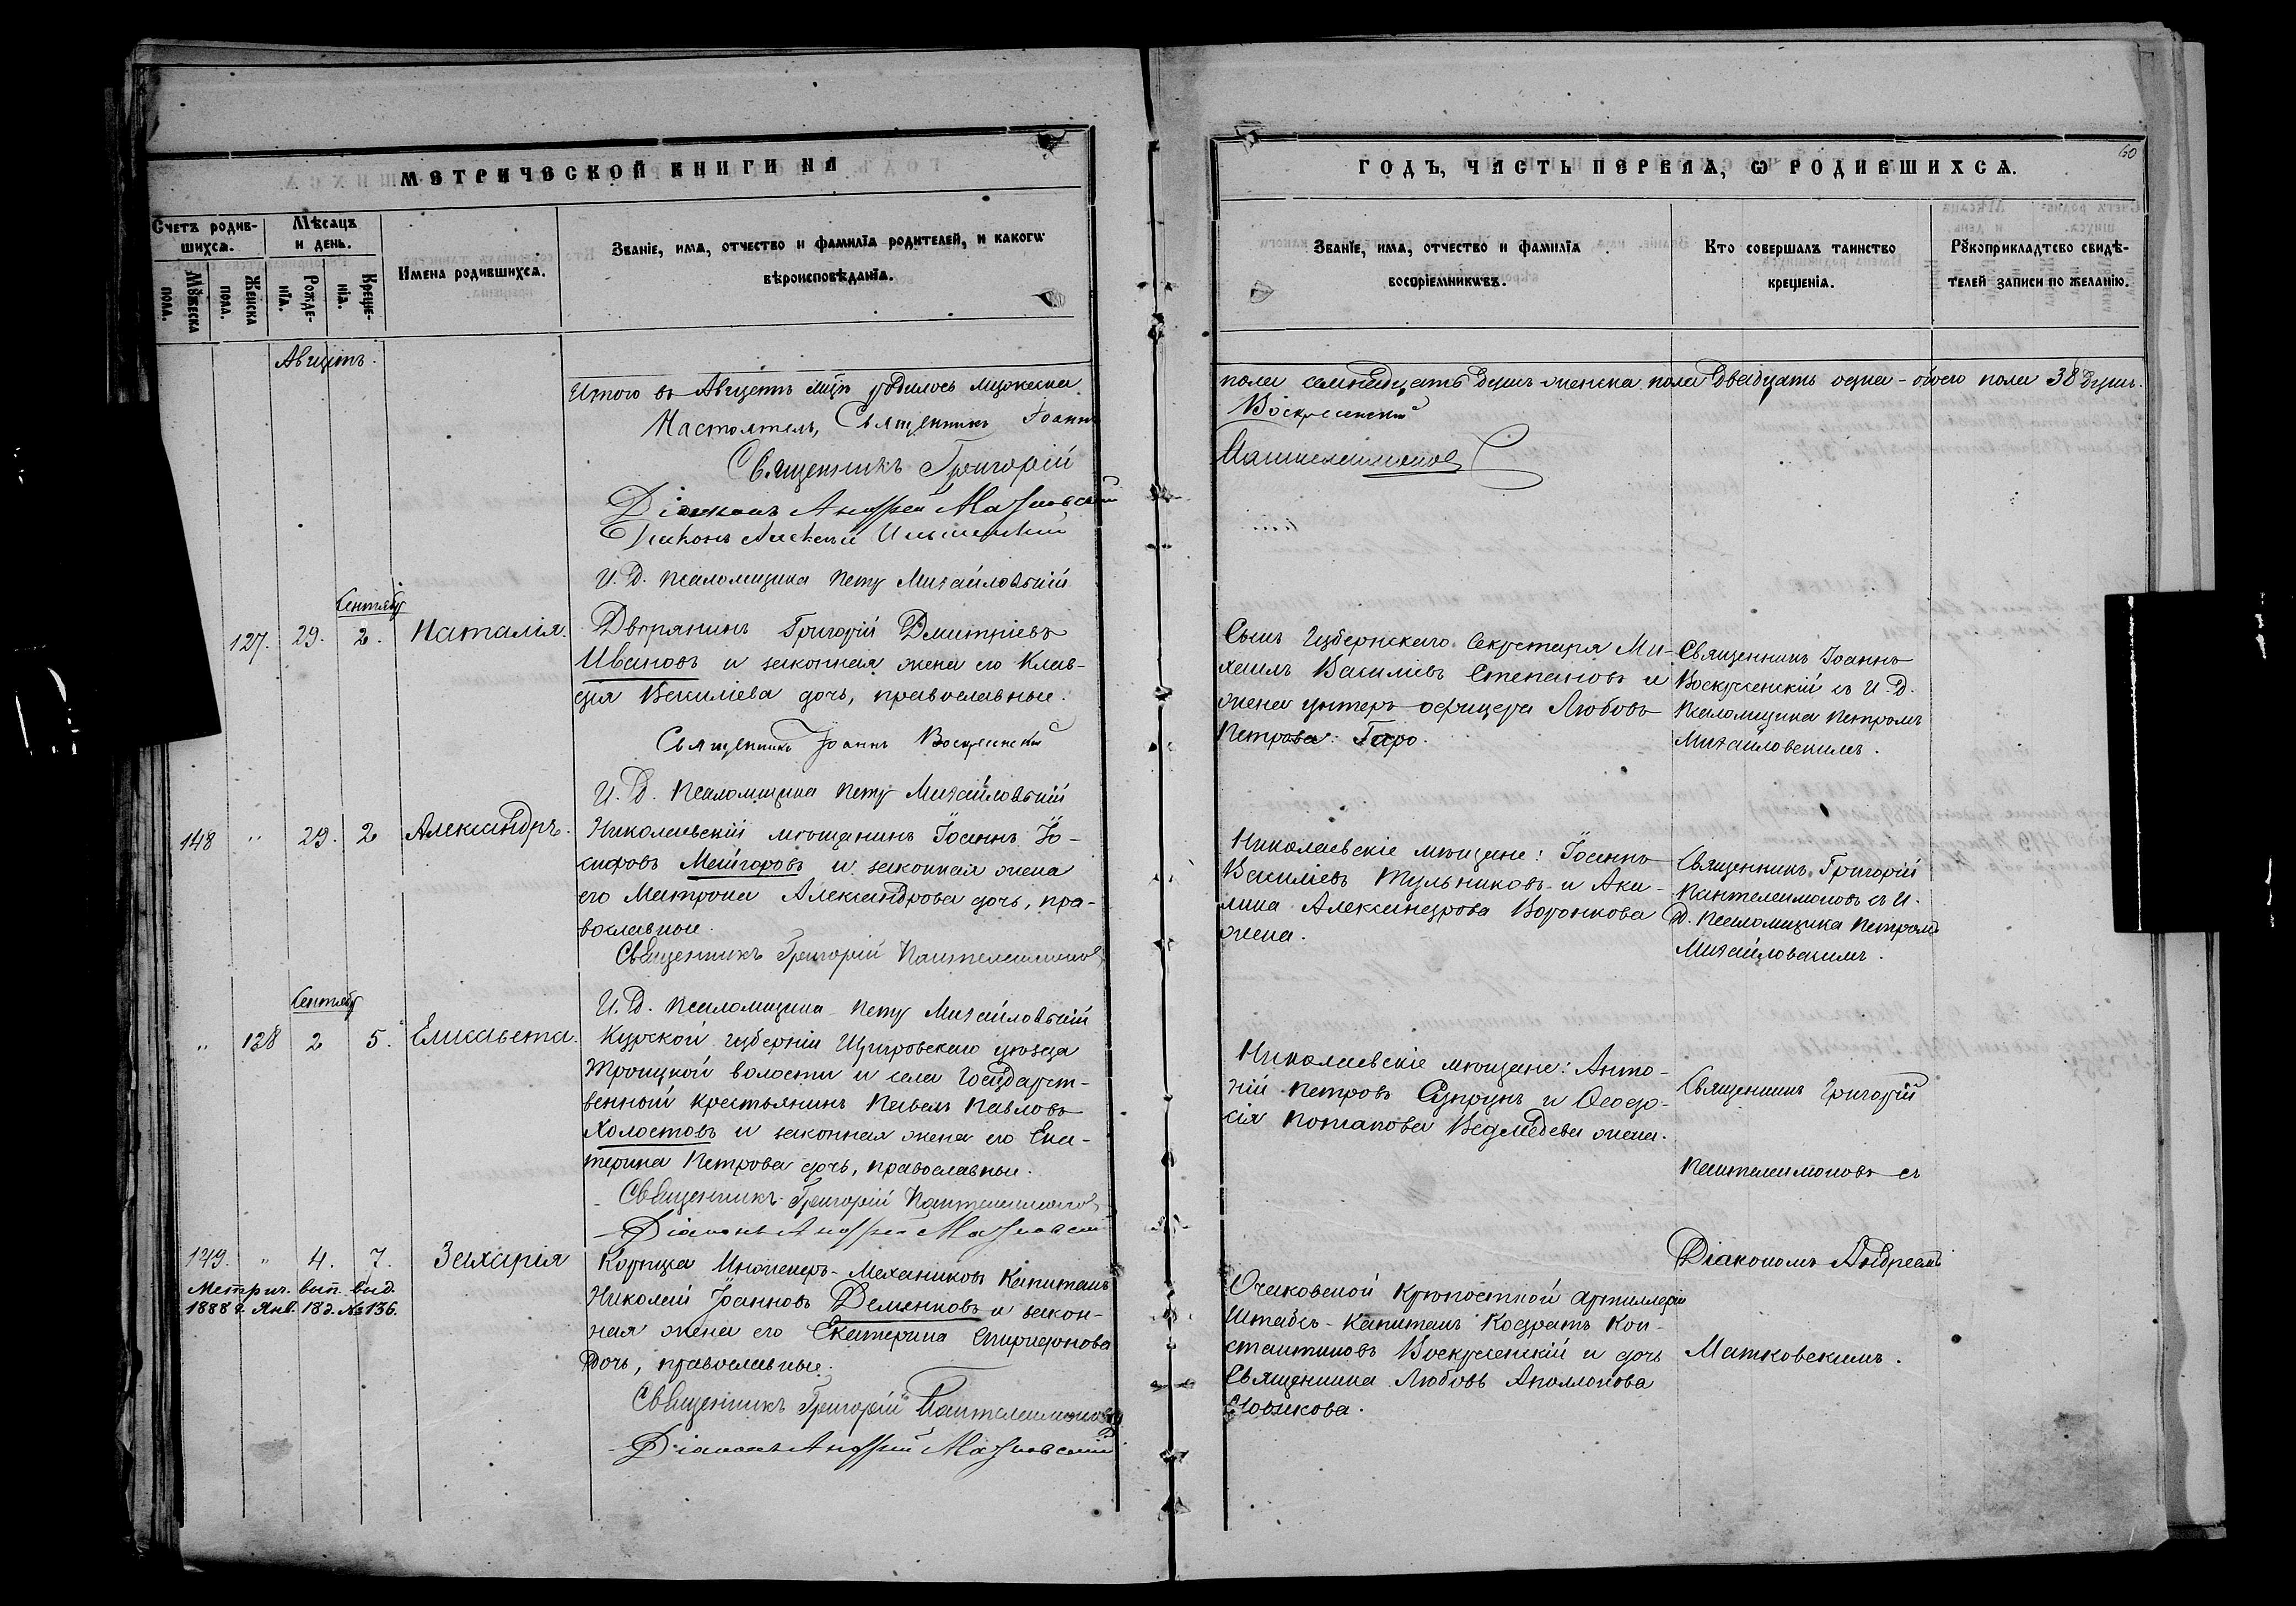 МЕТРИЧЕСКОЙ КНИГИ НА
Счетъ родив-
шихсѧ.
Мѣсѧцъ
и день.
Имена родившихсѧ.
Званїе, имѧ, отчество и фамилїа родителей, и какогѡ
вѣроисповѣданїѧ.
Мꙋжеска
пола.
Женска
пола.
Рожде-
нїѧ.
Креще-
нїѧ.
Августъ.
Итого въ Августѣ мцѣ родилось мужеска
Настоятель, Священникъ Іоаннъ
Священникъ Григорій
Діаконъ Андрей Матковскій
Діаконъ Алексѣй
И. Д. Псаломщика Петръ Михайловскій
Сентябр
127. 29. 2. Наталія.
Дворянинъ Григорій Дмитріевъ
Ивановъ и законная жена его Клав-
дія Василіева дочь, православные.
Священникъ Іоаннъ Воскресенскій
И. Д. Псаломщика Петръ Михайловскій
148 " 29. 2 Александръ.
Николаевскій мѣщанинъ Іоаннъ Іо-
сифовъ Мейгоровъ и законная жена
его Матрона Александрова дочь, пра-
вославные.
Священникъ Григорій Пантелеимонов
И. Д. Псаломщика Петръ Михайловскій
Сентябр
" 128 2 5. Елисавета.
Курской губерніи Щигровскаго уѣзда
Троицкой волости и села Государст-
венный крестьянинъ Павелъ Павловъ
Холостовъ и законная жена его Ека-
терина Петрова дочь, православные.
Священникъ Григорій Пантелеимонов
Діаконъ Андрей Матковскій
149. " 4. 7. Захарія
Метрич. вып. выд.
1888 г. Янв. 18 д. № 136.
Корпуса Инженеръ-Механиковъ Капитанъ
Николай Іоанновъ Деменковъ и закон-
ная жена его Екатерина Спиридонова
дочь, православные.
Священникъ Григорій Пантелеимоновъ
Діаконъ Андрей Матковскій
60
ГОДЪ, ЧАСТЬ ПЕРВАѦ, Ѡ РОДИВШИХСѦ.
Званїе, имѧ, отчество и фамилїа
воспрїемникѡвъ.
Кто совершалъ таинство
крещенїѧ.
Рꙋкоприкладтсво свидѣ-
телей записи по желанїю.
пола семнадцать душъ женска пола двадцать одна - обоего пола 38 душъ.
Воскресенскій
Пантелеимонов
Сынъ Губернскаго Секретаря Ми-
хаилъ Василіевъ Степановъ и
жена унтеръ-офицера Любовь
Петрова Гаро.
Священникъ Іоаннъ
Воскресенскій съ И. Д.
Псаломщика Петромъ
Михайловскимъ.
Николаевскіе мѣщане: Іоаннъ
Василіевъ Тульниковъ и Аки-
лина Александрова Воронкова
жена.
Священникъ Григорій
Пантелеимоновъ съ И.
Д. Псаломщика Петромъ
Михайловскимъ.
Николаевскіе мѣщане: Анто-
ній Петровъ Супрунъ и Ѳеодо-
сія Потапова Ведмедева жена.
Священникъ Григорій
Пантелеимоновъ съ
Діакономъ Андреемъ
Матковскимъ.
Очаковской Крѣпостной Артиллеріи
Штабсъ-Капитанъ Кодратъ Кон-
стантиновъ Воскресенскій и дочь
Священника Любовь Аполлонова
Новикова.